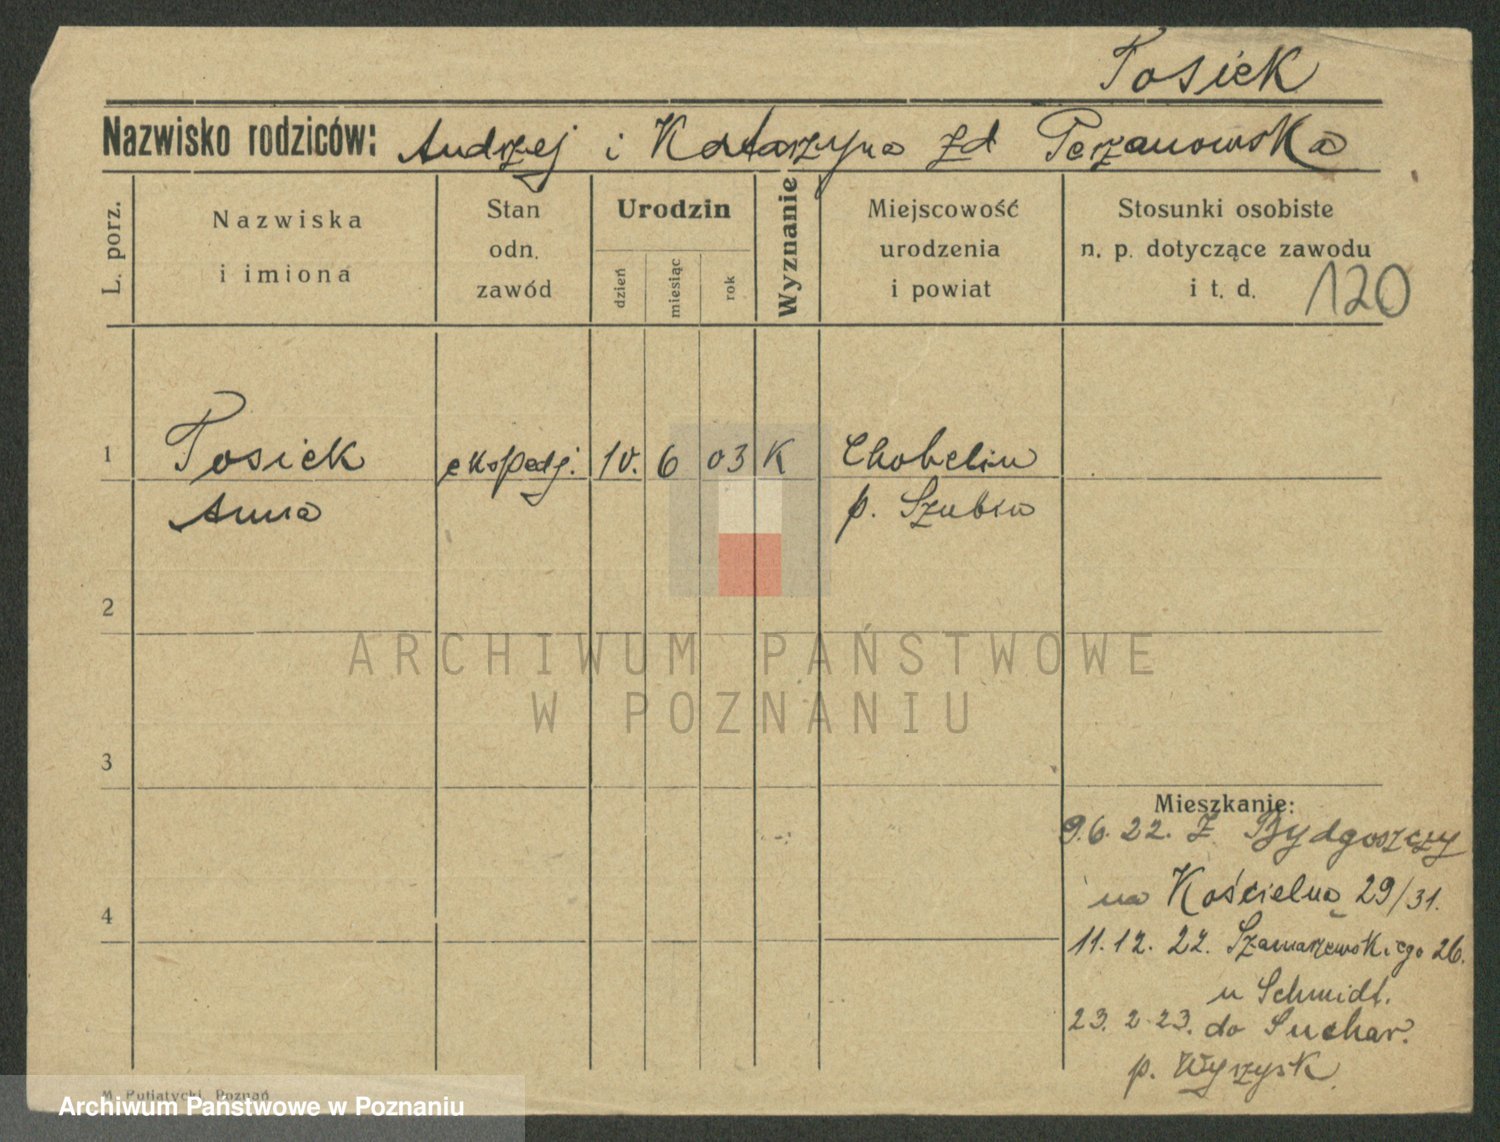 Tosiek
Nazwisko rodziców: Andrzej i Katarzyna zd Perzanowska
L. porz.
Nazwiska
i imiona
Stan
odn.
zawód
Urodzin
dzień
miesiąc
rok
Wyznanie
Miejscowość
urodzenia
i powiat
Stosunki osobiste
n. p. dotyczące zawodu
i t. d.
120
1 Tosiek ekspedj. 10. 6 03 K Chobelin
Anna p. Szubin
2
3
4
Mieszkanie:
9.6.22. z Bydgoszczy
na Kościelną 29/31.
11.12.22. Szamarzewskiego 26.
u Schmidt.
23.2.23. do Suchar.
p. Wyrzysk
M. Putiatycki, Poznań
ARCHIWUM PAŃSTWOWE
W POZNANIU
Archiwum Państwowe w Poznaniu